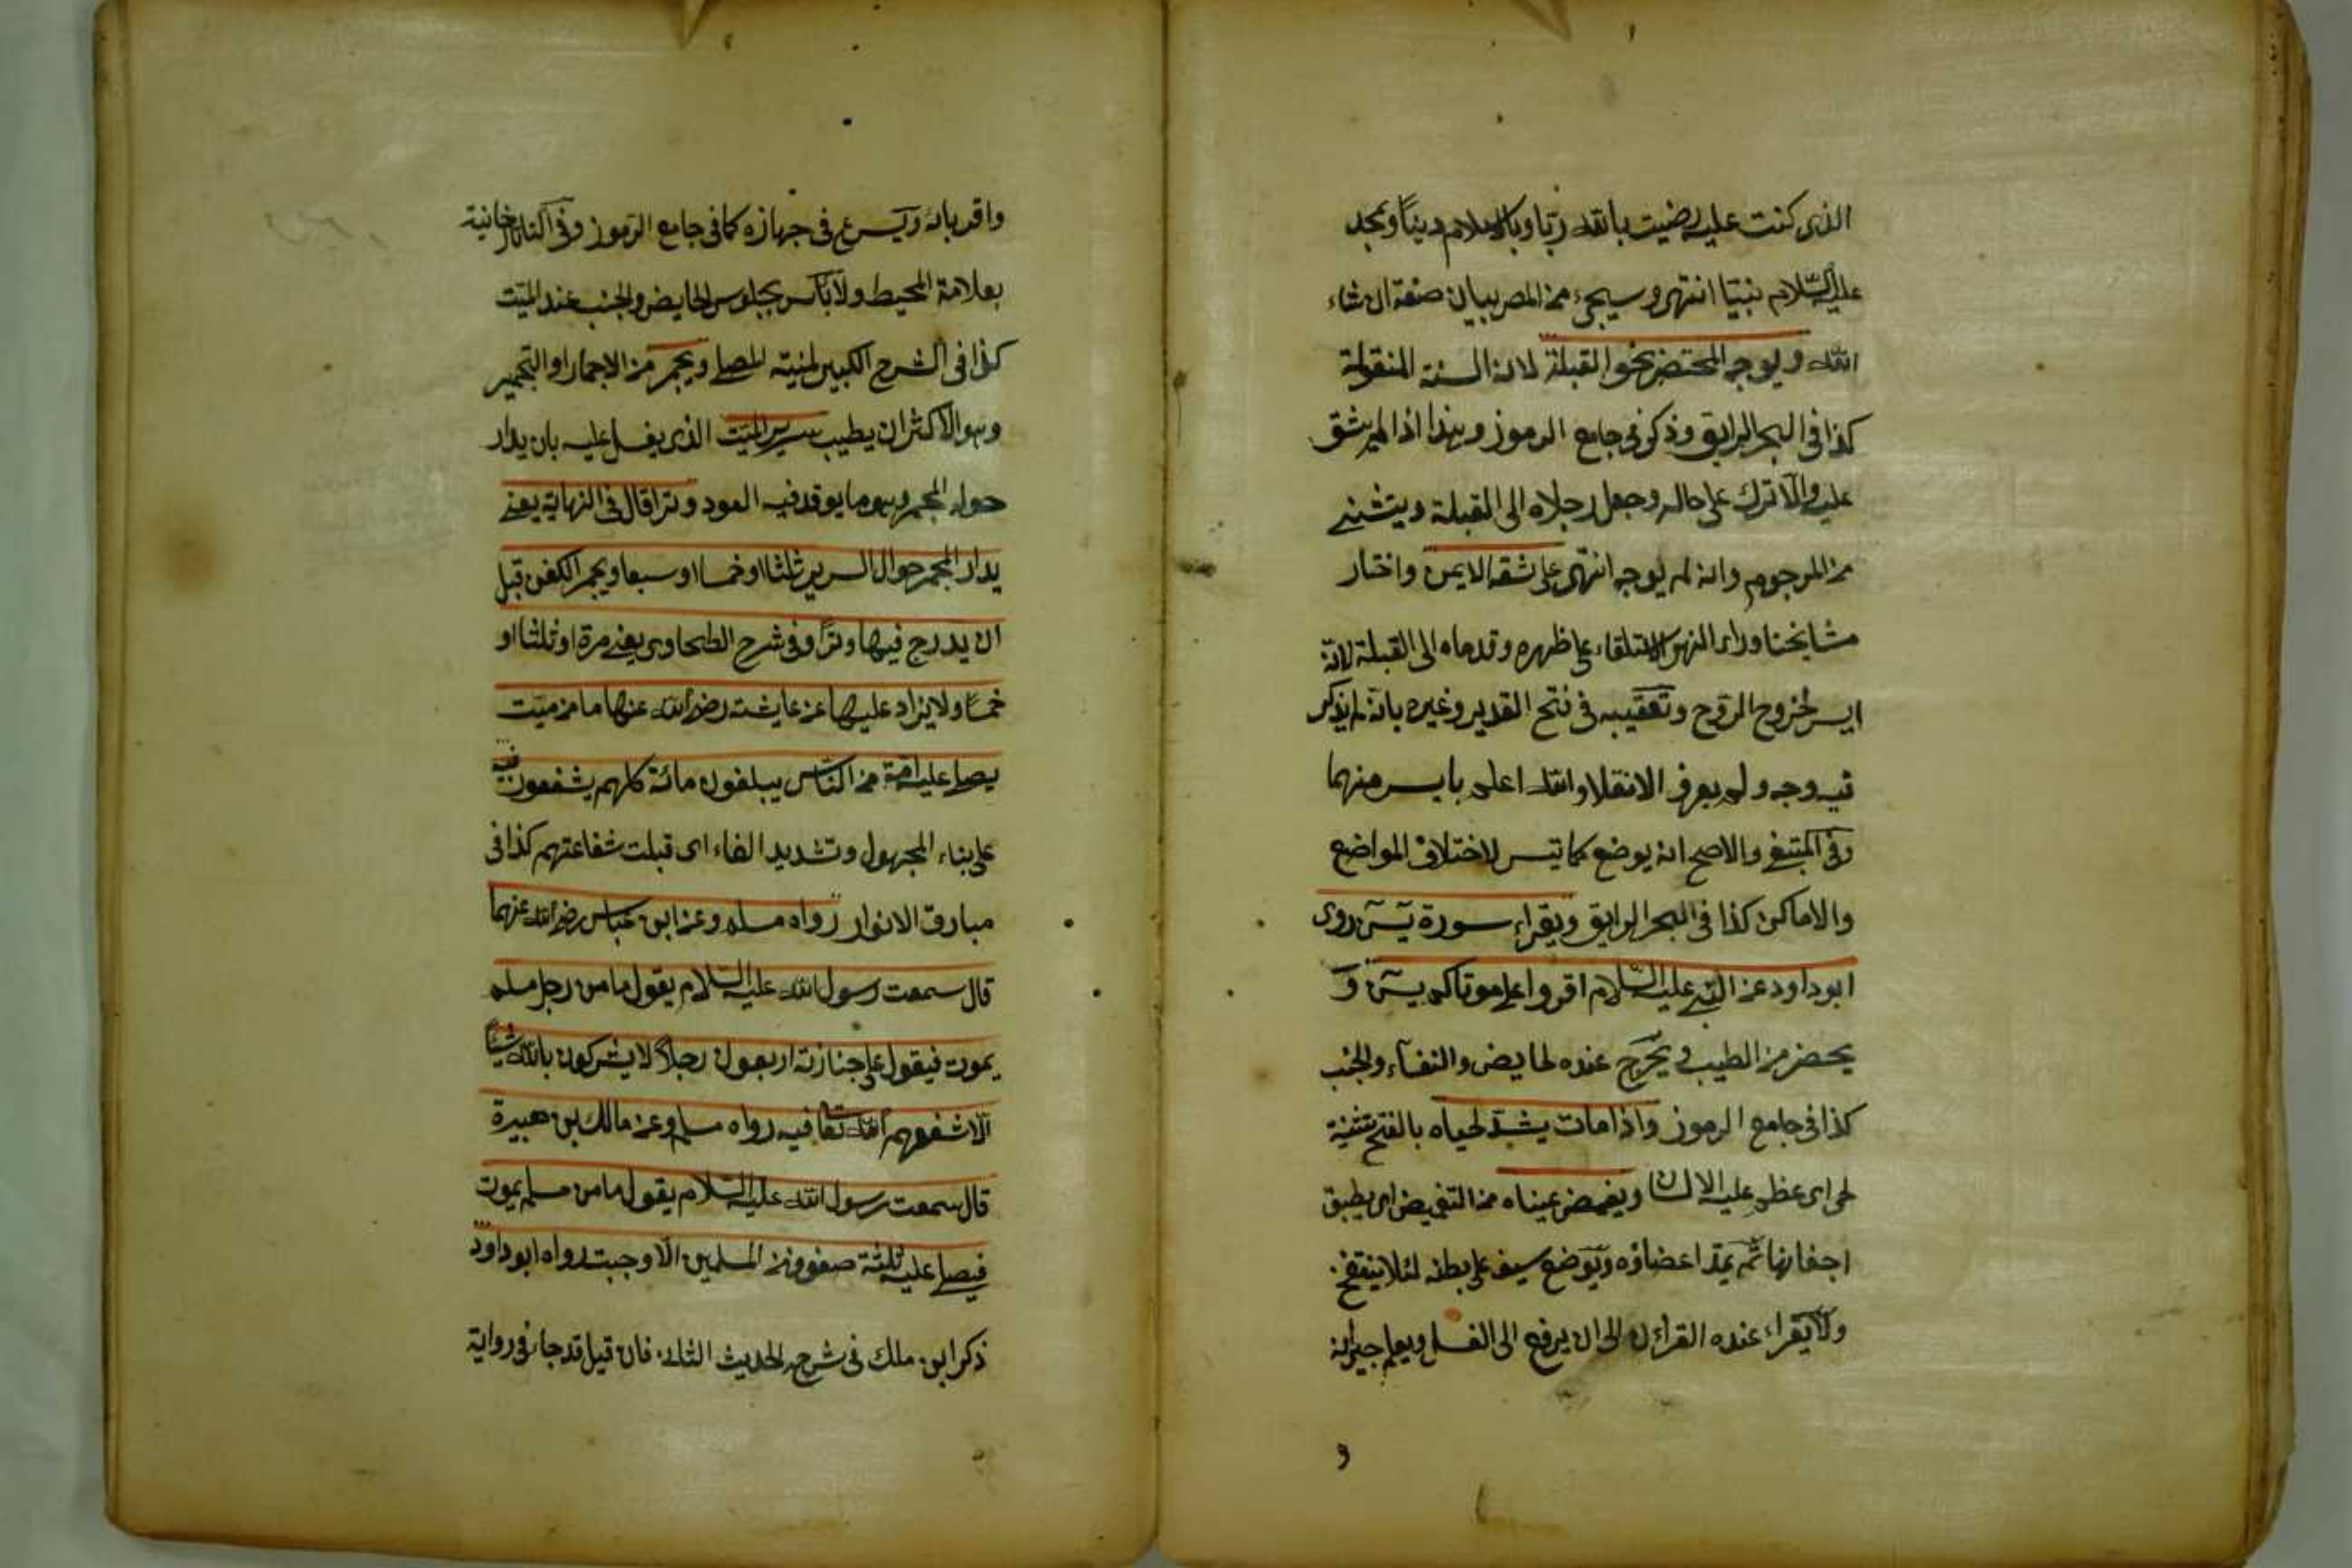 الذى كنت عليه رضيت بالله ربا وبالاسلام دينًا وبمحمد
عليه السّلام نبيّا انتهى وسيجئ من المص بيان صفة ان شاء
الله ويوجه المحتضر نحو القبلة لانه السنة المنقولة
كذا فى البحر الرايق وذكر فى جامع الرموز وهذا اذا لم يشق
عليه والّا ترك على حاله وجعل رجلاه الى القبلة ويستثنى
من المرجوم وانه لم يوجه انتهى على شقه الايمن واختار
مشايخنا وراء النهر الاستلقاء على ظهره وقدماه الى القبلة لانه
ايسر لخروج الروح وتعقيبه فى فتح القدير وغيره بانه لم يذكر
فيه وجه ولم يعرف الا نقلا والله اعلم بايسر منهما
وفى المبتغى والاصح انه يوضع كما تيسر لاختلاف المواضع
والاماكن كذا فى البحر الرايق ويقراء سورة يٓسٓ روى
ابو داود عن النبى عليه السّلام اقرؤا على موتاكم يسٓ و
يحضر من الطيب ويخرج عنده الحايض والنفساء والجنب
كذا فى جامع الرموز واذا مات يشد لحياه بالفتح تثنية
لحى اى عظم عليه الاسنان ويغمض عيناه من التغميض اى يطبق
اجفانها ثم يمد اعضاؤه ويوضع سيف على بطنه لئلا ينتفخ
ولا يقراء عنده القراءن الى ان يرفع الى الغسل ويعلم جيرانه
و
واقرباؤه ويسرع فى جهازه كما فى جامع الرموز وفى التتارخانية
بعلامة المحيط ولا بأس بجلوس الحايض والجنب عند الميّت
كذا فى الشرح الكبير لمنية المصلى ويجمر من الاجمار او التجمير
وهو الاكثر ان يطيب سرير الميّت الذى يغسل عليه بان يدار
حوله المجمر وهو ما يوقد فيه العود وترا قال فى النهاية يعنى
يدار المجمر حوال السرير ثلثا او خمسا او سبعا ويجمر الكفن قبل
ان يدرج فيها وترًا وفى شرح الطحاوى يعنى مرة او ثلثا او
خمسًا ولا يزاد عليها عن عايشة رضى الله عنها ما من ميّت
يصلى عليه امة من الناس يبلغون مائة كلهم يشفعون فيه
على بناء المجهول وتشديد الفاء اى قبلت شفاعتهم كذا فى
مبارق الانوار رواه مسلم وعن ابن عباس رضى الله عنهما
قال سمعت رسول الله عليه السّلام يقول ما من رجل مسلم
يموت فيقول على جنازته اربعون رجلًا لا يشركون بالله شيئًا
الّا شفعهم الله تعا فيه رواه مسلم وعن مالك بن هبيرة
قال سمعت رسول الله عليه السّلام يقول ما من مسلم يموت
فيصلى عليه ثلثة صفوف من المسلمين الّا وجبت رواه ابو داود
ذكر ابن ملك فى شرحه لحديث الثلث فان قيل قد جاء فى رواية